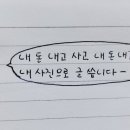 내 돈 내고 사고, 내 돈 내
내 사진으로 글 씁니다-